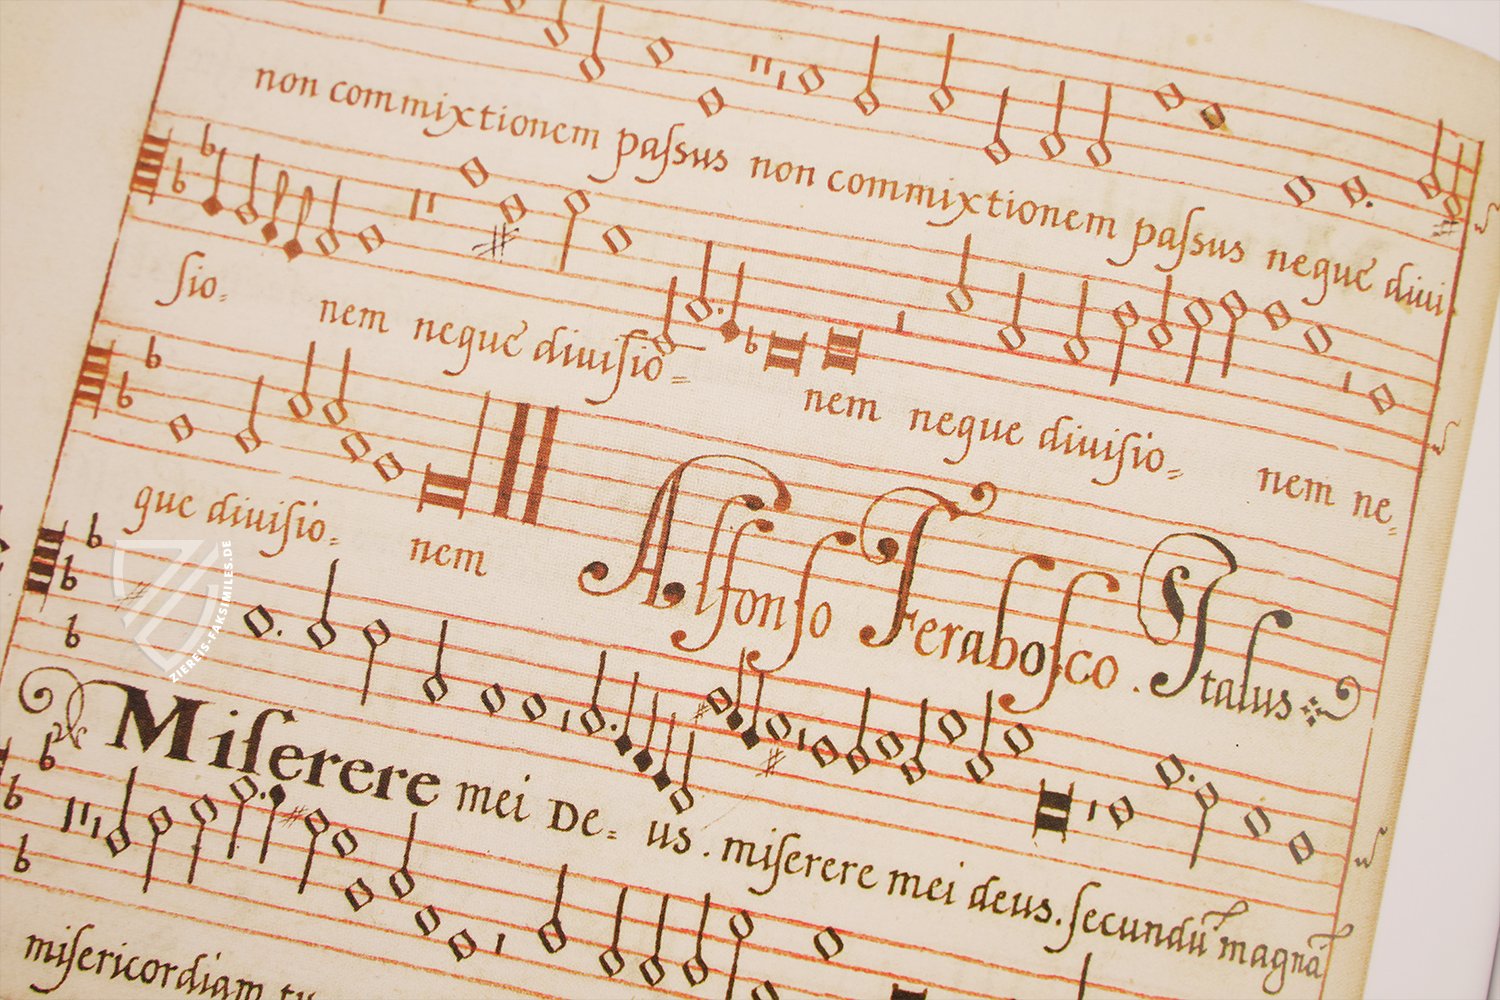 non commixtionem paſsus non commixtionem paſsus neque diui
ſio= nem neque diuiſio= nem neque diuiſio= nem ne=
que diuiſio= nem
Alfonſo Feraboſco . Italus
Miſerere mei De= us . miſerere mei deus . ſecundū magnā
miſericordiam tu
ZIEREIS-FAKSIMILES.DE